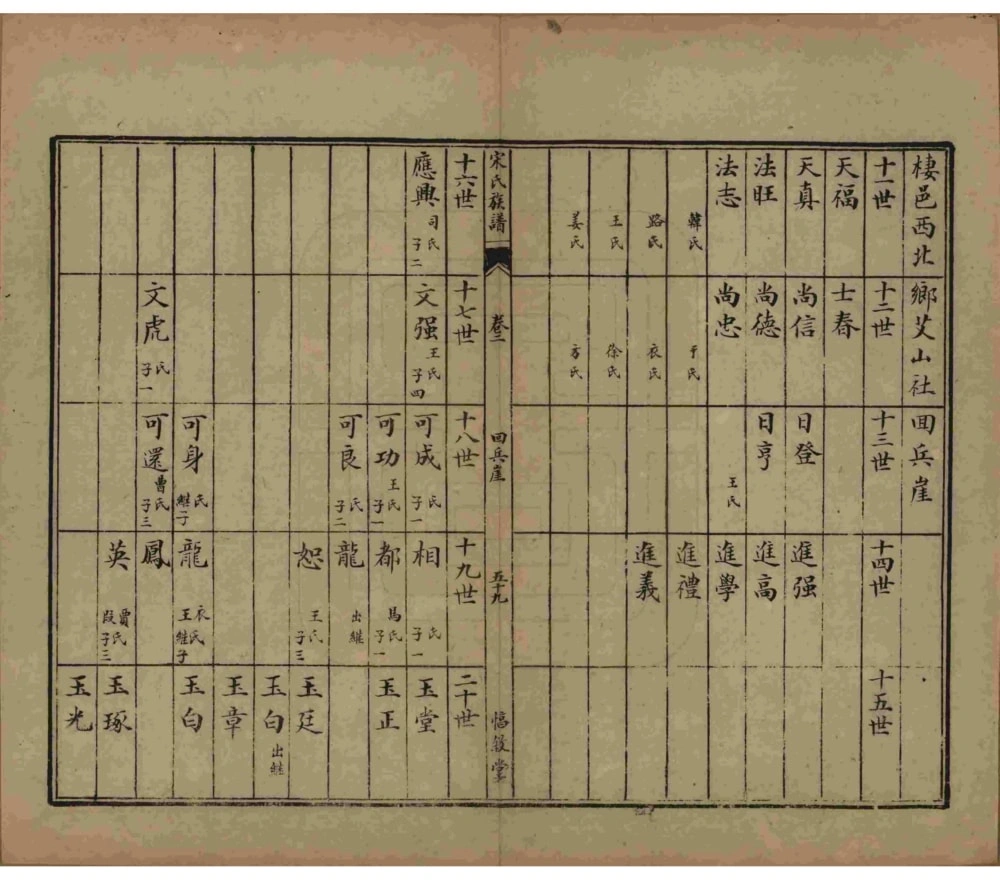 棲邑西北鄉艾山社回兵崖
十一世 十二世 十三世 十四世 十五世
天福 士春
天真 尚信 日登 進强
法旺 尚德 日亨 進高
法志 尚忠 王氏 進學
韓氏 于氏 進禮
路氏 衣氏 進義
王氏 徐氏
姜氏 方氏
宋氏族譜 卷二 回兵崖 五十九
十六世 十七世 十八世 十九世 二十世
應興 司氏 子二 文强 王氏 子四 可成 氏 子一 相 氏 子一 玉堂
可功 王氏 子一 都 馬氏 子一 玉正
可良 氏 子二 龍 出繼
恕 王氏 子三 玉廷
玉白 出繼
玉章
可身 氏 繼子 龍 衣氏 王 繼子 玉白
文虎 氏 子一 可還 曹氏 子三 鳳
英 賈氏 段 子三 玉琢
玉光